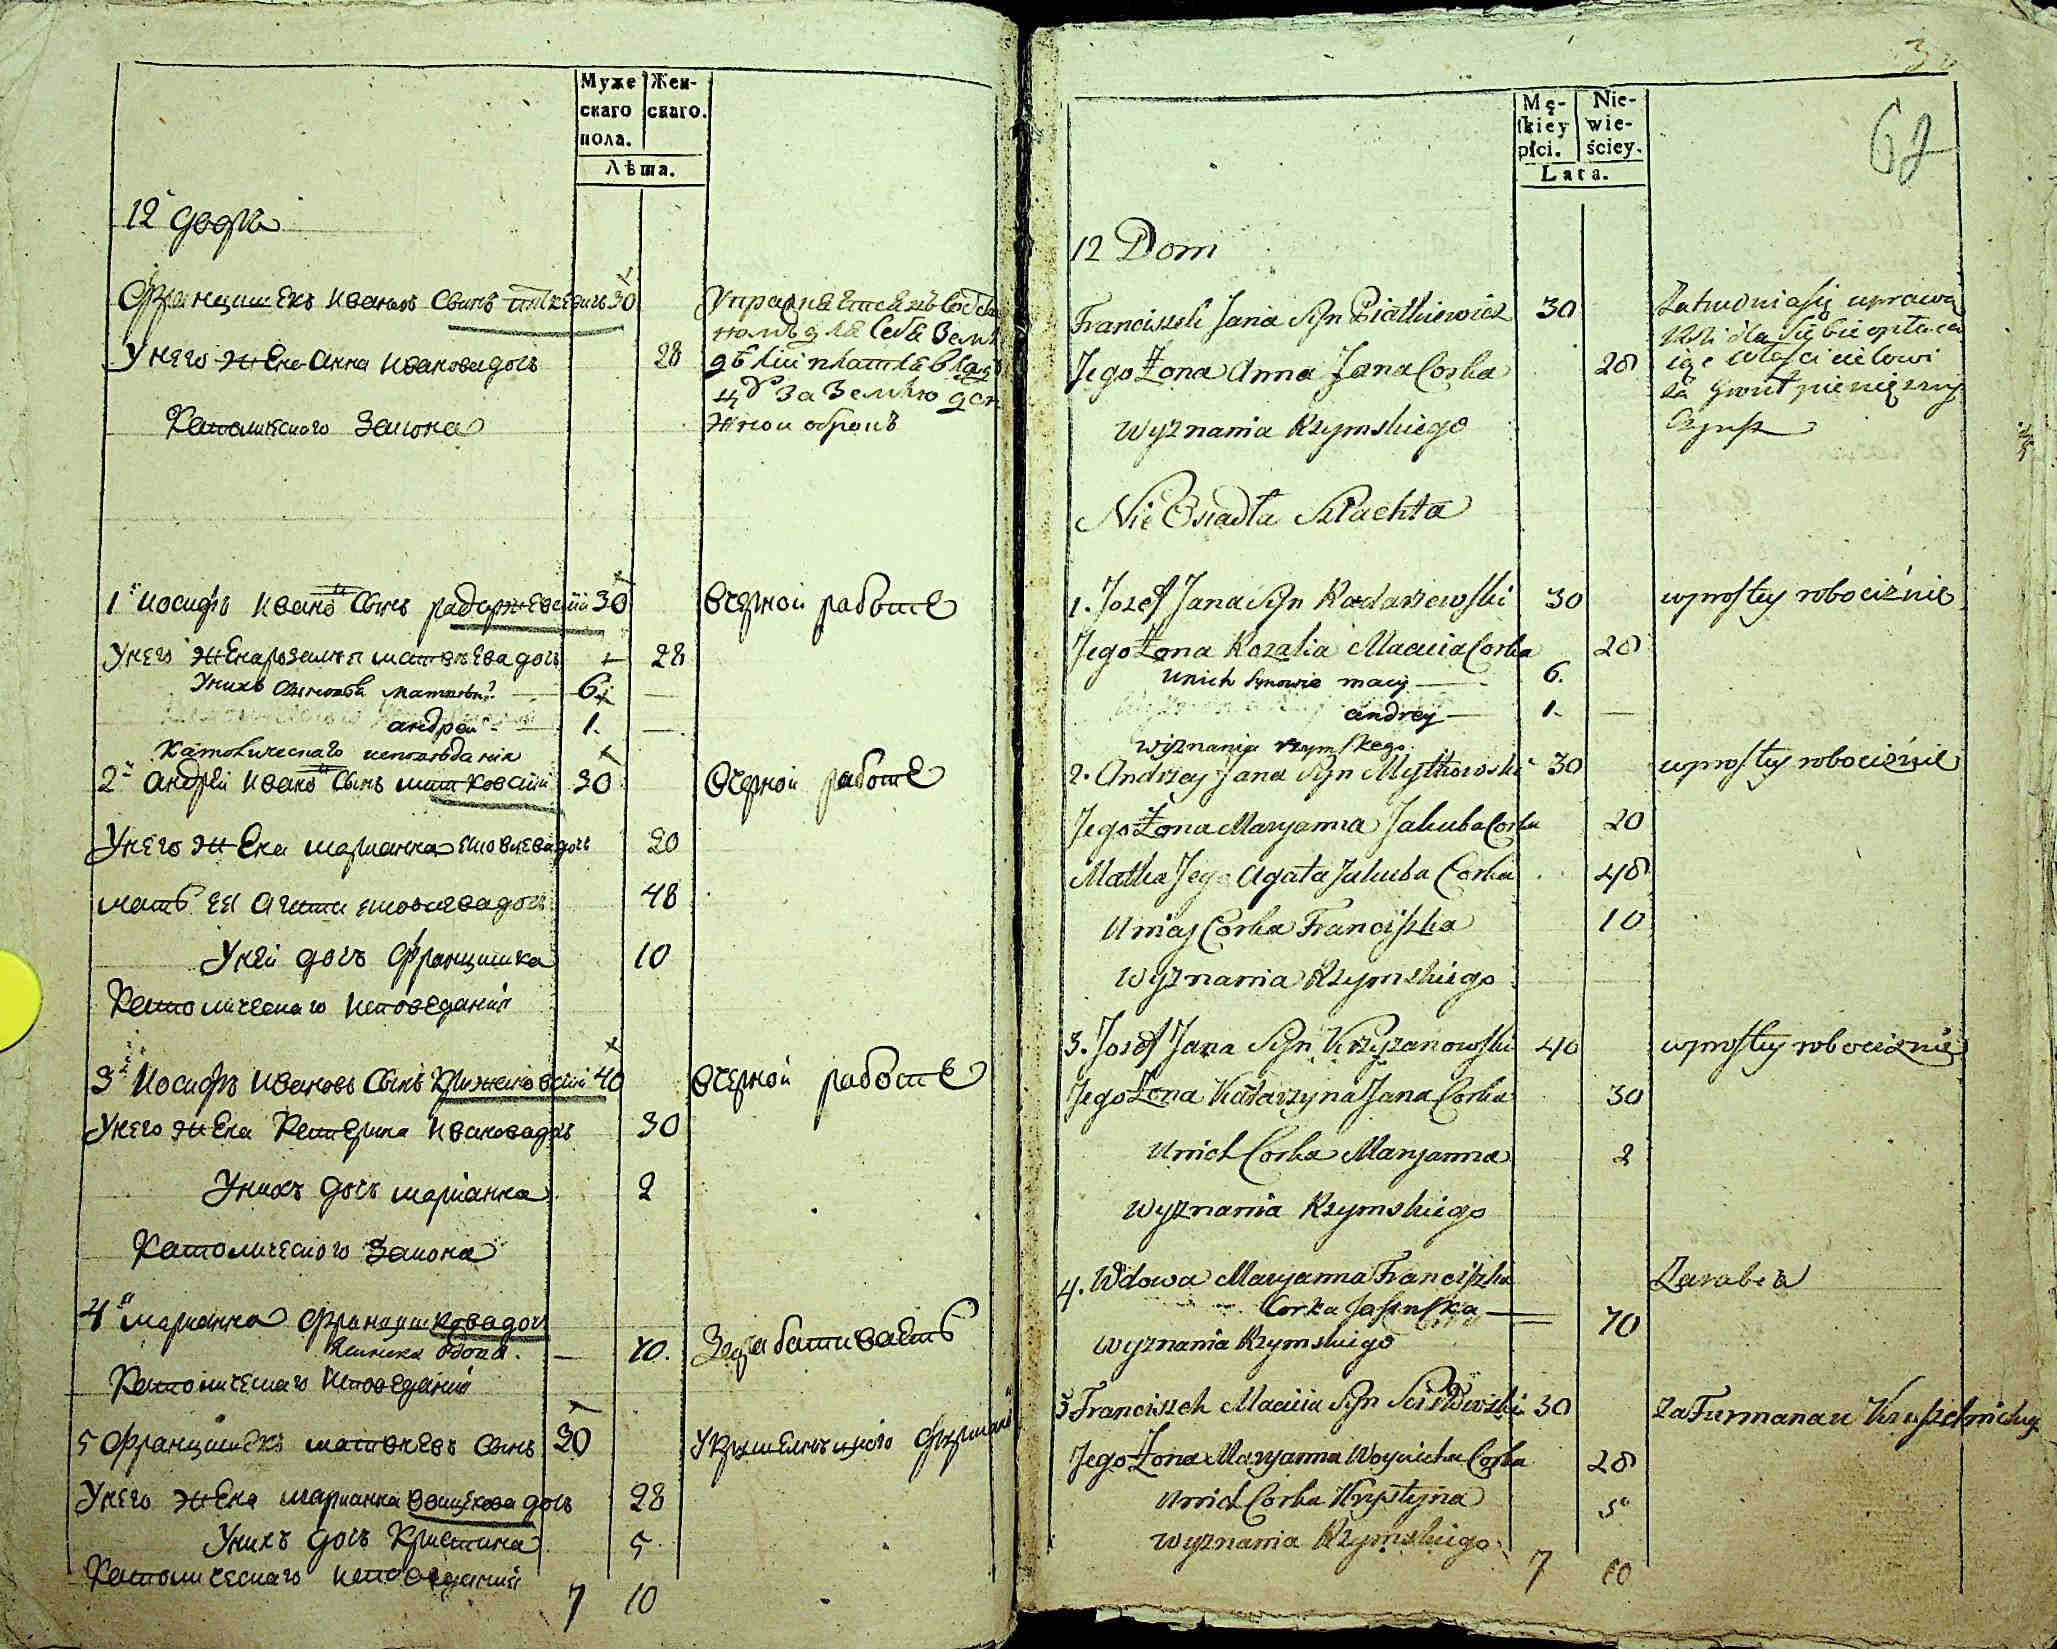 Муже Жен-
скаго скаго.
пола.
Лѣта.
12 дворъ
Францишекъ Ивановъ Сынъ 30 Упражняется
для себя
У него жена Анна Иванова дочь 28 платя
за землю
Католическаго Закона оброкъ
1й Иосифъ Ивановъ Сынъ Радаржевскій 30 В черной работѣ
У него жена Розалія Матвѣева дочь 28
У нихъ сыновья Матвѣй 6
Андрей 1.
Католическаго исповѣданія
2й Андрей Ивановъ Сынъ Митковскій 30 В черной работѣ
У него жена Маріанна дочь 20
мать ея Агата дочь 48
У ней дочь Францишка 10
Католическаго Исповеданія
3й Иосифъ Ивановъ Сынъ Крижановскій 40 В черной работѣ
У него жена Катерина Иванова дочь 30
У нихъ дочь Маріанна 2
Католическаго Закона
4я Маріанна Францишкова дочь
вдова. 70. Зарабатываетъ
Католическаго Исповеданія
5 Францишекъ Матвѣевъ Сынъ 30 У
У него жена Маріанна Войцехова дочь 28
У нихъ дочь Кристина 5
Католическаго Исповеданія
7 10
62
Mę- Nie-
ſkiey wie-
płci. ściey.
Lata.
12 Dom
Franciszek Jana Syn Piątkiewicz 30 Zatrudnia się uprawą
Roli dla siebie opłaca
Jego Żona Anna Jana Corka 28 iąc Właścicielowi
za Grunt pieniężny
Wyznania Rzymskiego Czynsz
Nie Osiadła Szlachta
1. Jozef Jana Syn Radarzewski 30 w prostey robociznie
Jego Żona Rozalia Macieia Corka 28
Unich Synowie maciy 6.
andrey 1.
wyznania rzymskego
2. Andrzey Jana Syn Mytkowski 30 w prostey robociznie
Jego Żona Maryanna Jakuba Corka 20
Matka Jego Agata Jakuba Corka 48
U niej Corka Franciszka 10
Wyznania Rzymskiego
3. Jozef Jana Syn Krzyzanowski 40 w prostey robociznie
Jego Żona Katarzyna Jana Corka 30
Unich Corka Maryanna 2
Wyznania Rzymskiego
4. Wdowa Maryanna Franciszka Zarabia
Corka Jasinska 70
Wyznania Rzymskiego
5 Franciszek Macieia Syn 30 Za Furmana u
Jego Żona Maryanna Woyciecha Corka 28
Unich Corka Krystyna 5
Wyznania Rzymskiego
7 10